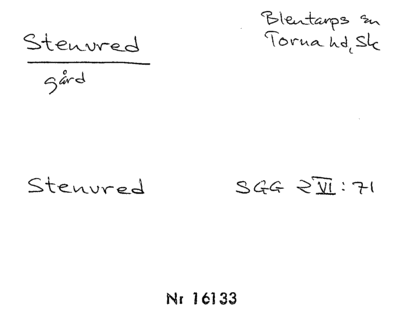 Stenvred
gård
Blentarps sn
Torna hd, Sk
Stenvred
SGG 2 VI : 71
Nr 16133